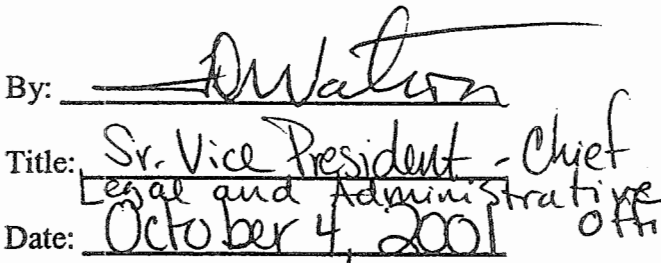 By: DWatson
Title: Sr. Vice President - Chief
Legal and Administrative
Offi
Date: October 4, 2001